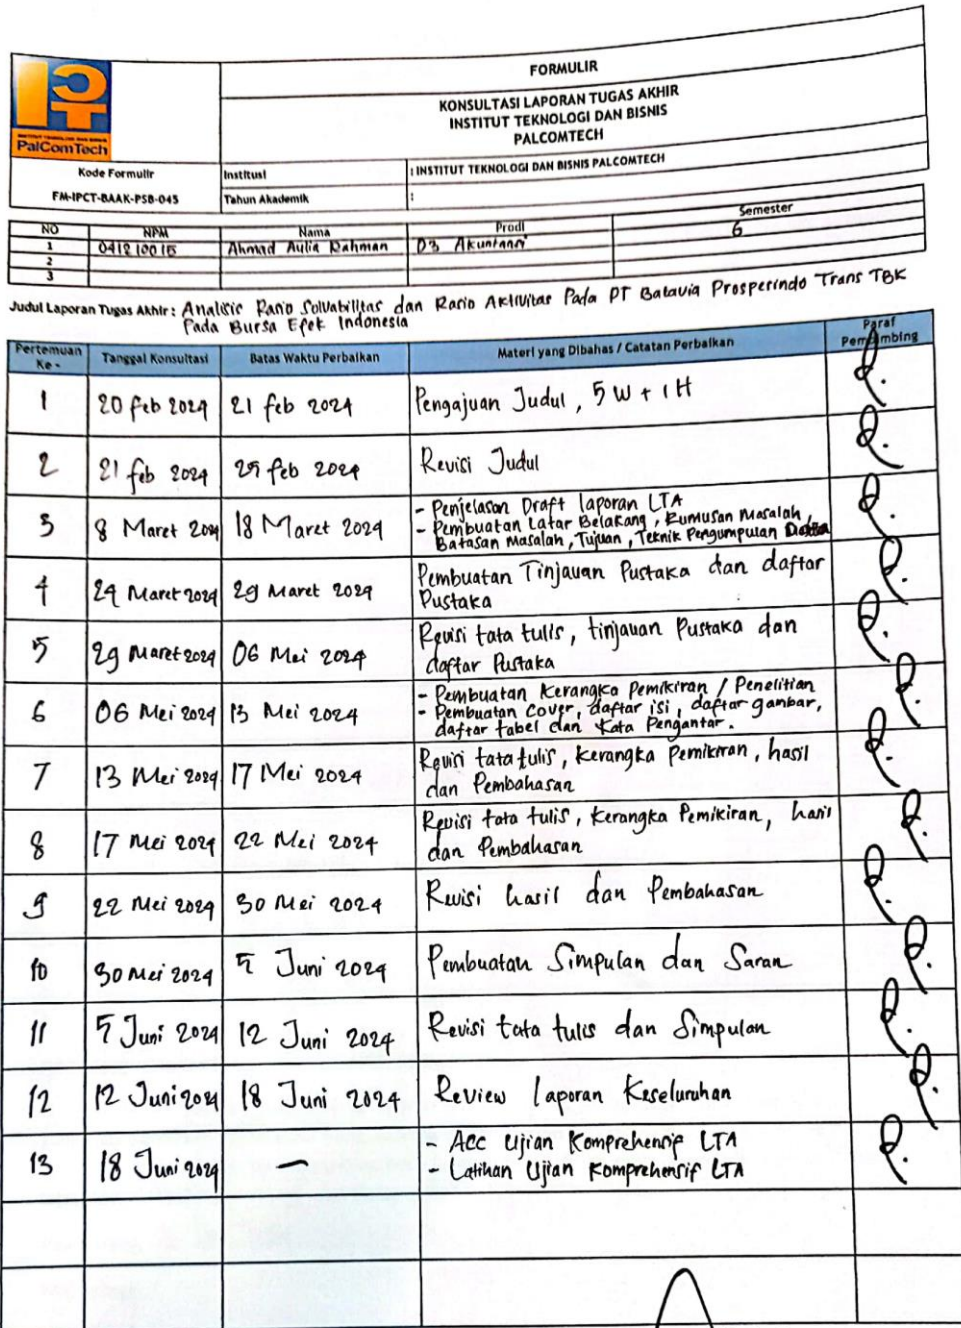 FORMULIR
KONSULTASI LAPORAN TUGAS AKHIR
INSTITUT TEKNOLOGI DAN BISNIS
PALCOMTECH
PalComTech
Kode Formulir
FM-IPCT-BAAK-PSB-045
Institusi : INSTITUT TEKNOLOGI DAN BISNIS PALCOMTECH
Tahun Akademik :
NO NPM Nama Prodi Semester
1 041210015 Ahmad Aulia Rahman D3 Akuntansi 6
2
3
Judul Laporan Tugas Akhir : Analisis Rasio Solvabilitas dan Rasio Aktivitas Pada PT Batavia Prosperindo Trans TBK
Pada Bursa Efek Indonesia
Pertemuan Ke - Tanggal Konsultasi Batas Waktu Perbaikan Materi yang Dibahas / Catatan Perbaikan Paraf Pembimbing
1 20 feb 2024 21 feb 2024 Pengajuan Judul, 5 W + 1 H
2 21 feb 2024 25 feb 2024 Revisi Judul
3 8 Maret 2024 18 Maret 2024 - Penjelasan Draft laporan LTA
- Pembuatan Latar Belakang, Rumusan Masalah,
Batasan Masalah, Tujuan, Teknik Pengumpulan Data
4 24 Maret 2024 29 Maret 2024 Pembuatan Tinjauan Pustaka dan daftar
Pustaka
5 29 Maret 2024 06 Mei 2024 Revisi tata tulis, tinjauan Pustaka dan
daftar Pustaka
6 06 Mei 2024 13 Mei 2024 - Pembuatan Kerangka Pemikiran / Penelitian
- Pembuatan Cover, daftar isi, daftar gambar,
daftar tabel dan Kata Pengantar.
7 13 Mei 2024 17 Mei 2024 Revisi tata tulis, Kerangka Pemikiran, hasil
dan Pembahasan
8 17 Mei 2024 22 Mei 2024 Revisi tata tulis, Kerangka Pemikiran, hasil
dan Pembahasan
9 22 Mei 2024 30 Mei 2024 Revisi hasil dan Pembahasan
10 30 Mei 2024 5 Juni 2024 Pembuatan Simpulan dan Saran
11 5 Juni 2024 12 Juni 2024 Revisi tata tulis dan Simpulan
12 12 Juni 2024 18 Juni 2024 Review laporan Keseluruhan
13 18 Juni 2024 - - Acc Ujian Komprehensif LTA
- Latihan Ujian Komprehensif LTA